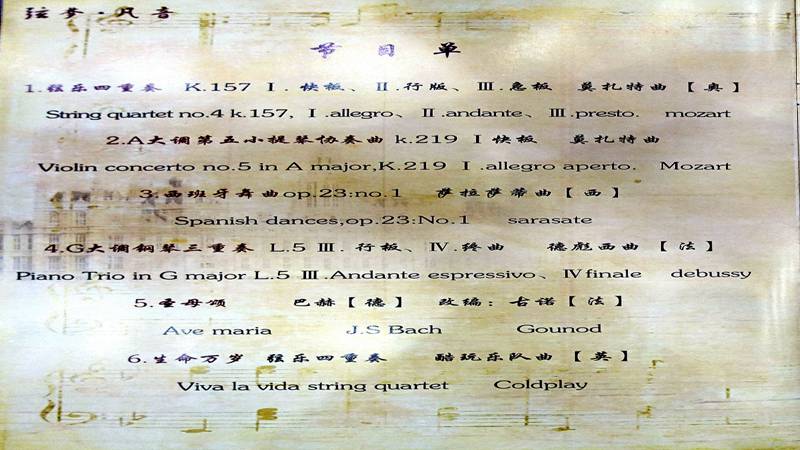 弦梦·风音
节目单
1.弦乐四重奏 K.157 Ⅰ.快板、Ⅱ.行版、Ⅲ.急板 莫扎特曲【奥】
String quartet no.4 k.157, Ⅰ.allegro、Ⅱ.andante、Ⅲ.presto. mozart
2.A大调第五小提琴协奏曲 k.219 Ⅰ快板 莫扎特曲
Violin concerto no.5 in A major,K.219 Ⅰ.allegro aperto. Mozart
3.西班牙舞曲op.23:no.1 萨拉萨蒂曲【西】
Spanish dances,op.23:No.1 sarasate
4.G大调钢琴三重奏 L.5 Ⅲ.行板、Ⅳ.终曲 德彪西曲【法】
Piano Trio in G major L.5 Ⅲ.Andante espressivo、Ⅳfinale debussy
5.圣母颂 巴赫【德】 改编：古诺【法】
Ave maria J.S Bach Gounod
6.生命万岁 弦乐四重奏 酷玩乐队曲【英】
Viva la vida string quartet Coldplay